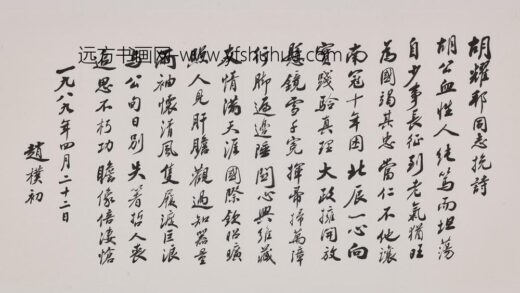 胡耀邦同志挽詩
胡公血性人純篤而坦蕩
自少事長征到老氣猶旺
為國竭其忠當仁不他讓
南冠十年囚北辰一心向
實踐驗真理大政擁開放
懸鏡雪千冤揮帚掃萬障
行脚遍邊疆關心興維藏
交情滿天涯國際欽昭曠
照人見肝膽觀過知器量
兩袖懷清風隻履渡巨浪
公旬日別失著哲人喪
追思不朽功瞻像倍淒愴
一九八九年四月二十二日
趙樸初
远方书画网-www.yfshuhua.com